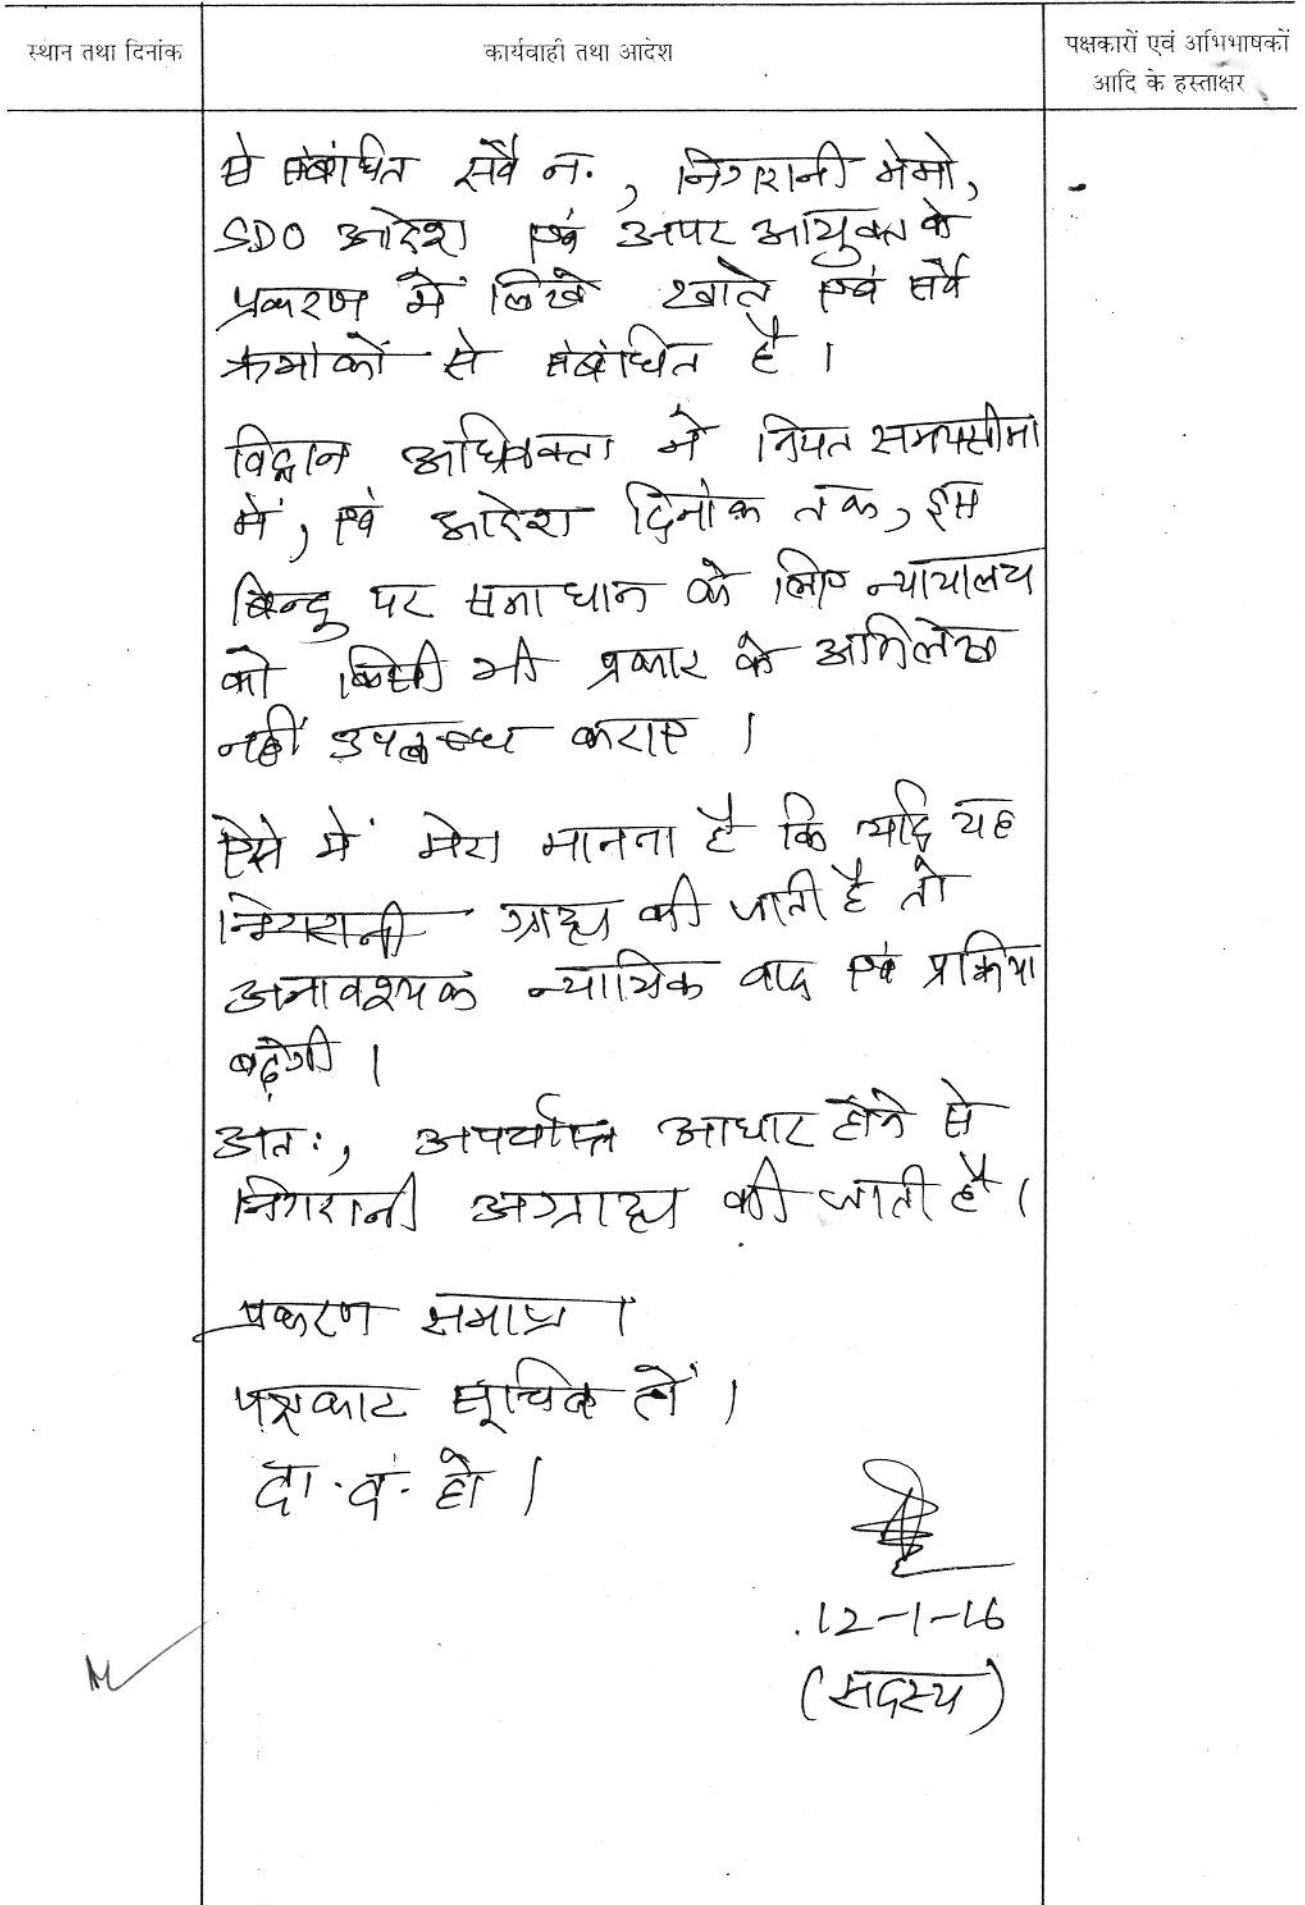 स्थान तथा दिनांक
कार्यवाही तथा आदेश
पक्षकारों एवं अभिभाषकों
आदि के हस्ताक्षर
से संबंधित सर्वे नं., निगरानी मेमो,
SDO आदेश एवं अपर आयुक्त के
प्रकरण में लिखे खाते एवं सर्वे
क्रमांकों से संबंधित है।
विद्वान अधिवक्ता ने नियत समयसीमा
में, एवं आदेश दिनांक तक, इस
बिन्दु पर समाधान के लिए न्यायालय
को किसी भी प्रकार के अभिलेख
नहीं उपलब्ध कराए।
ऐसे में मेरा मानना है कि यदि यह
निगरानी ग्राह्य की जाती है तो
अनावश्यक न्यायिक वाद एवं प्रक्रिया
बढ़ेगी।
अतः, अपर्याप्त आधार होने से
निगरानी अग्राह्य की जाती है।
प्रकरण समाप्त।
पक्षकार सूचित हों।
दा. द. हो।
12-1-16
(सदस्य)